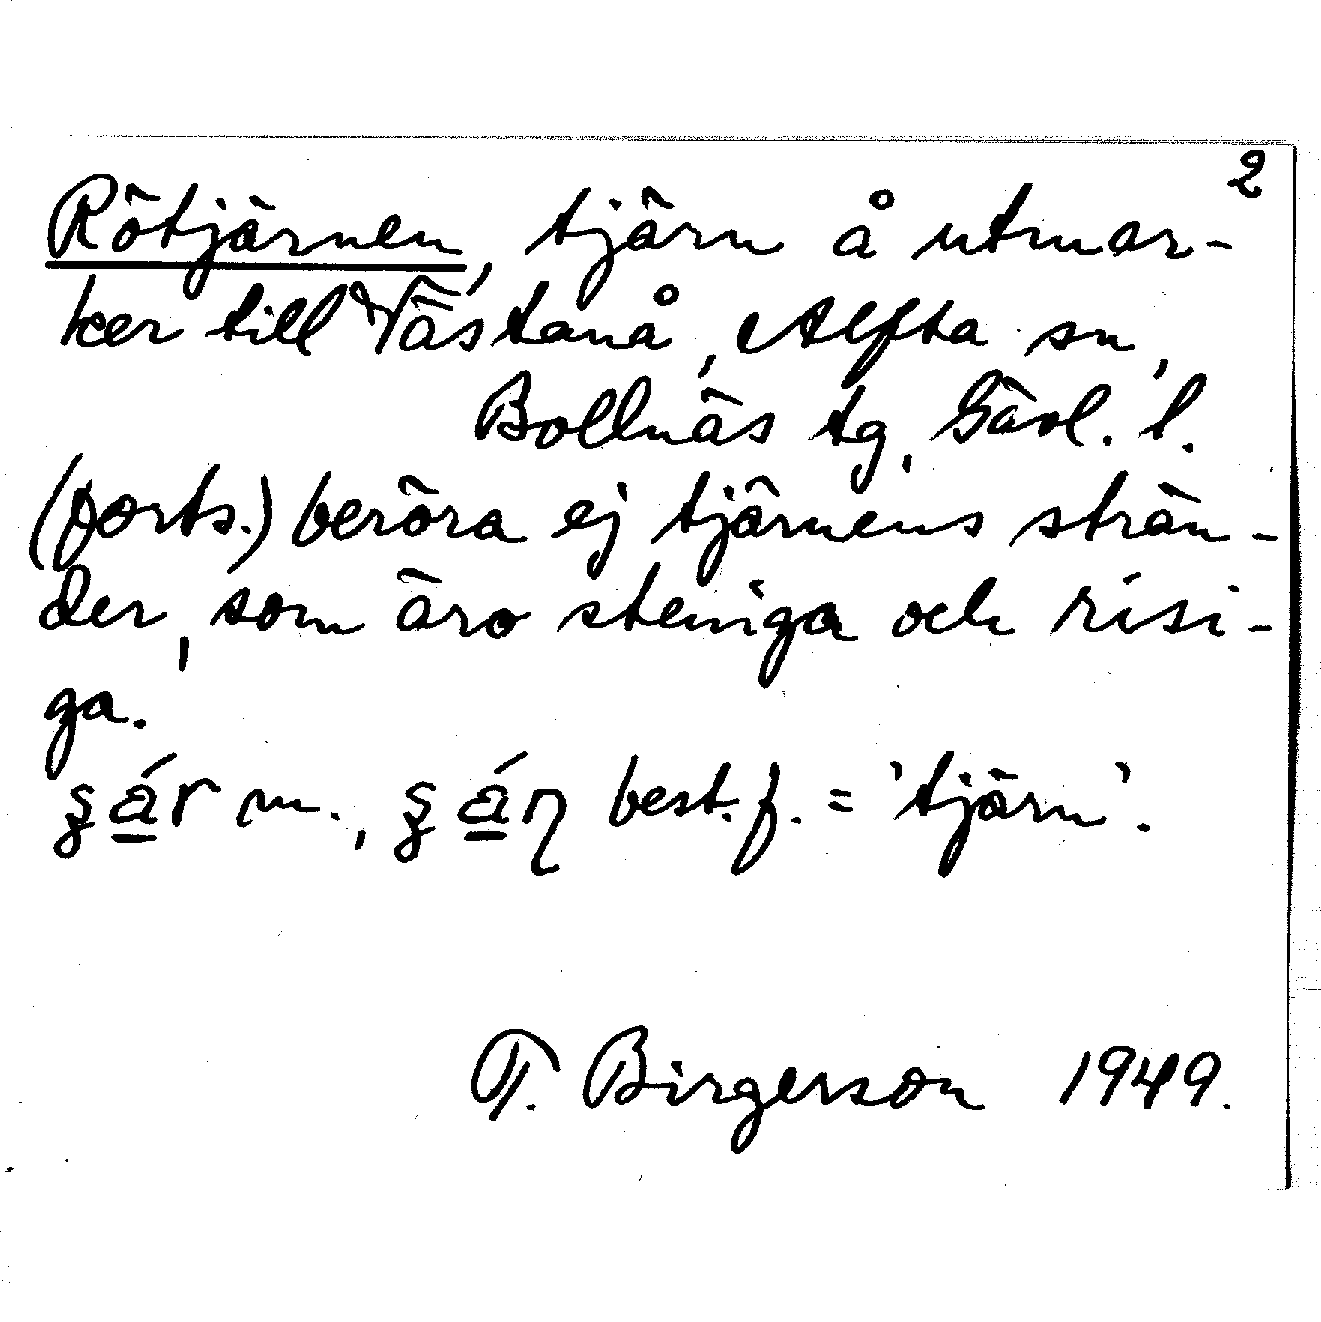 2
Rötjärnen, tjärn å utmar-
ker till Västanå, Alfta sn,
Bollnäs tg, Gävl. l.
(forts.) beröra ej tjärnens strän-
der, som äro steniga och risi-
ga.
best. f. = 'tjärn'.
T. Birgerson 1949.